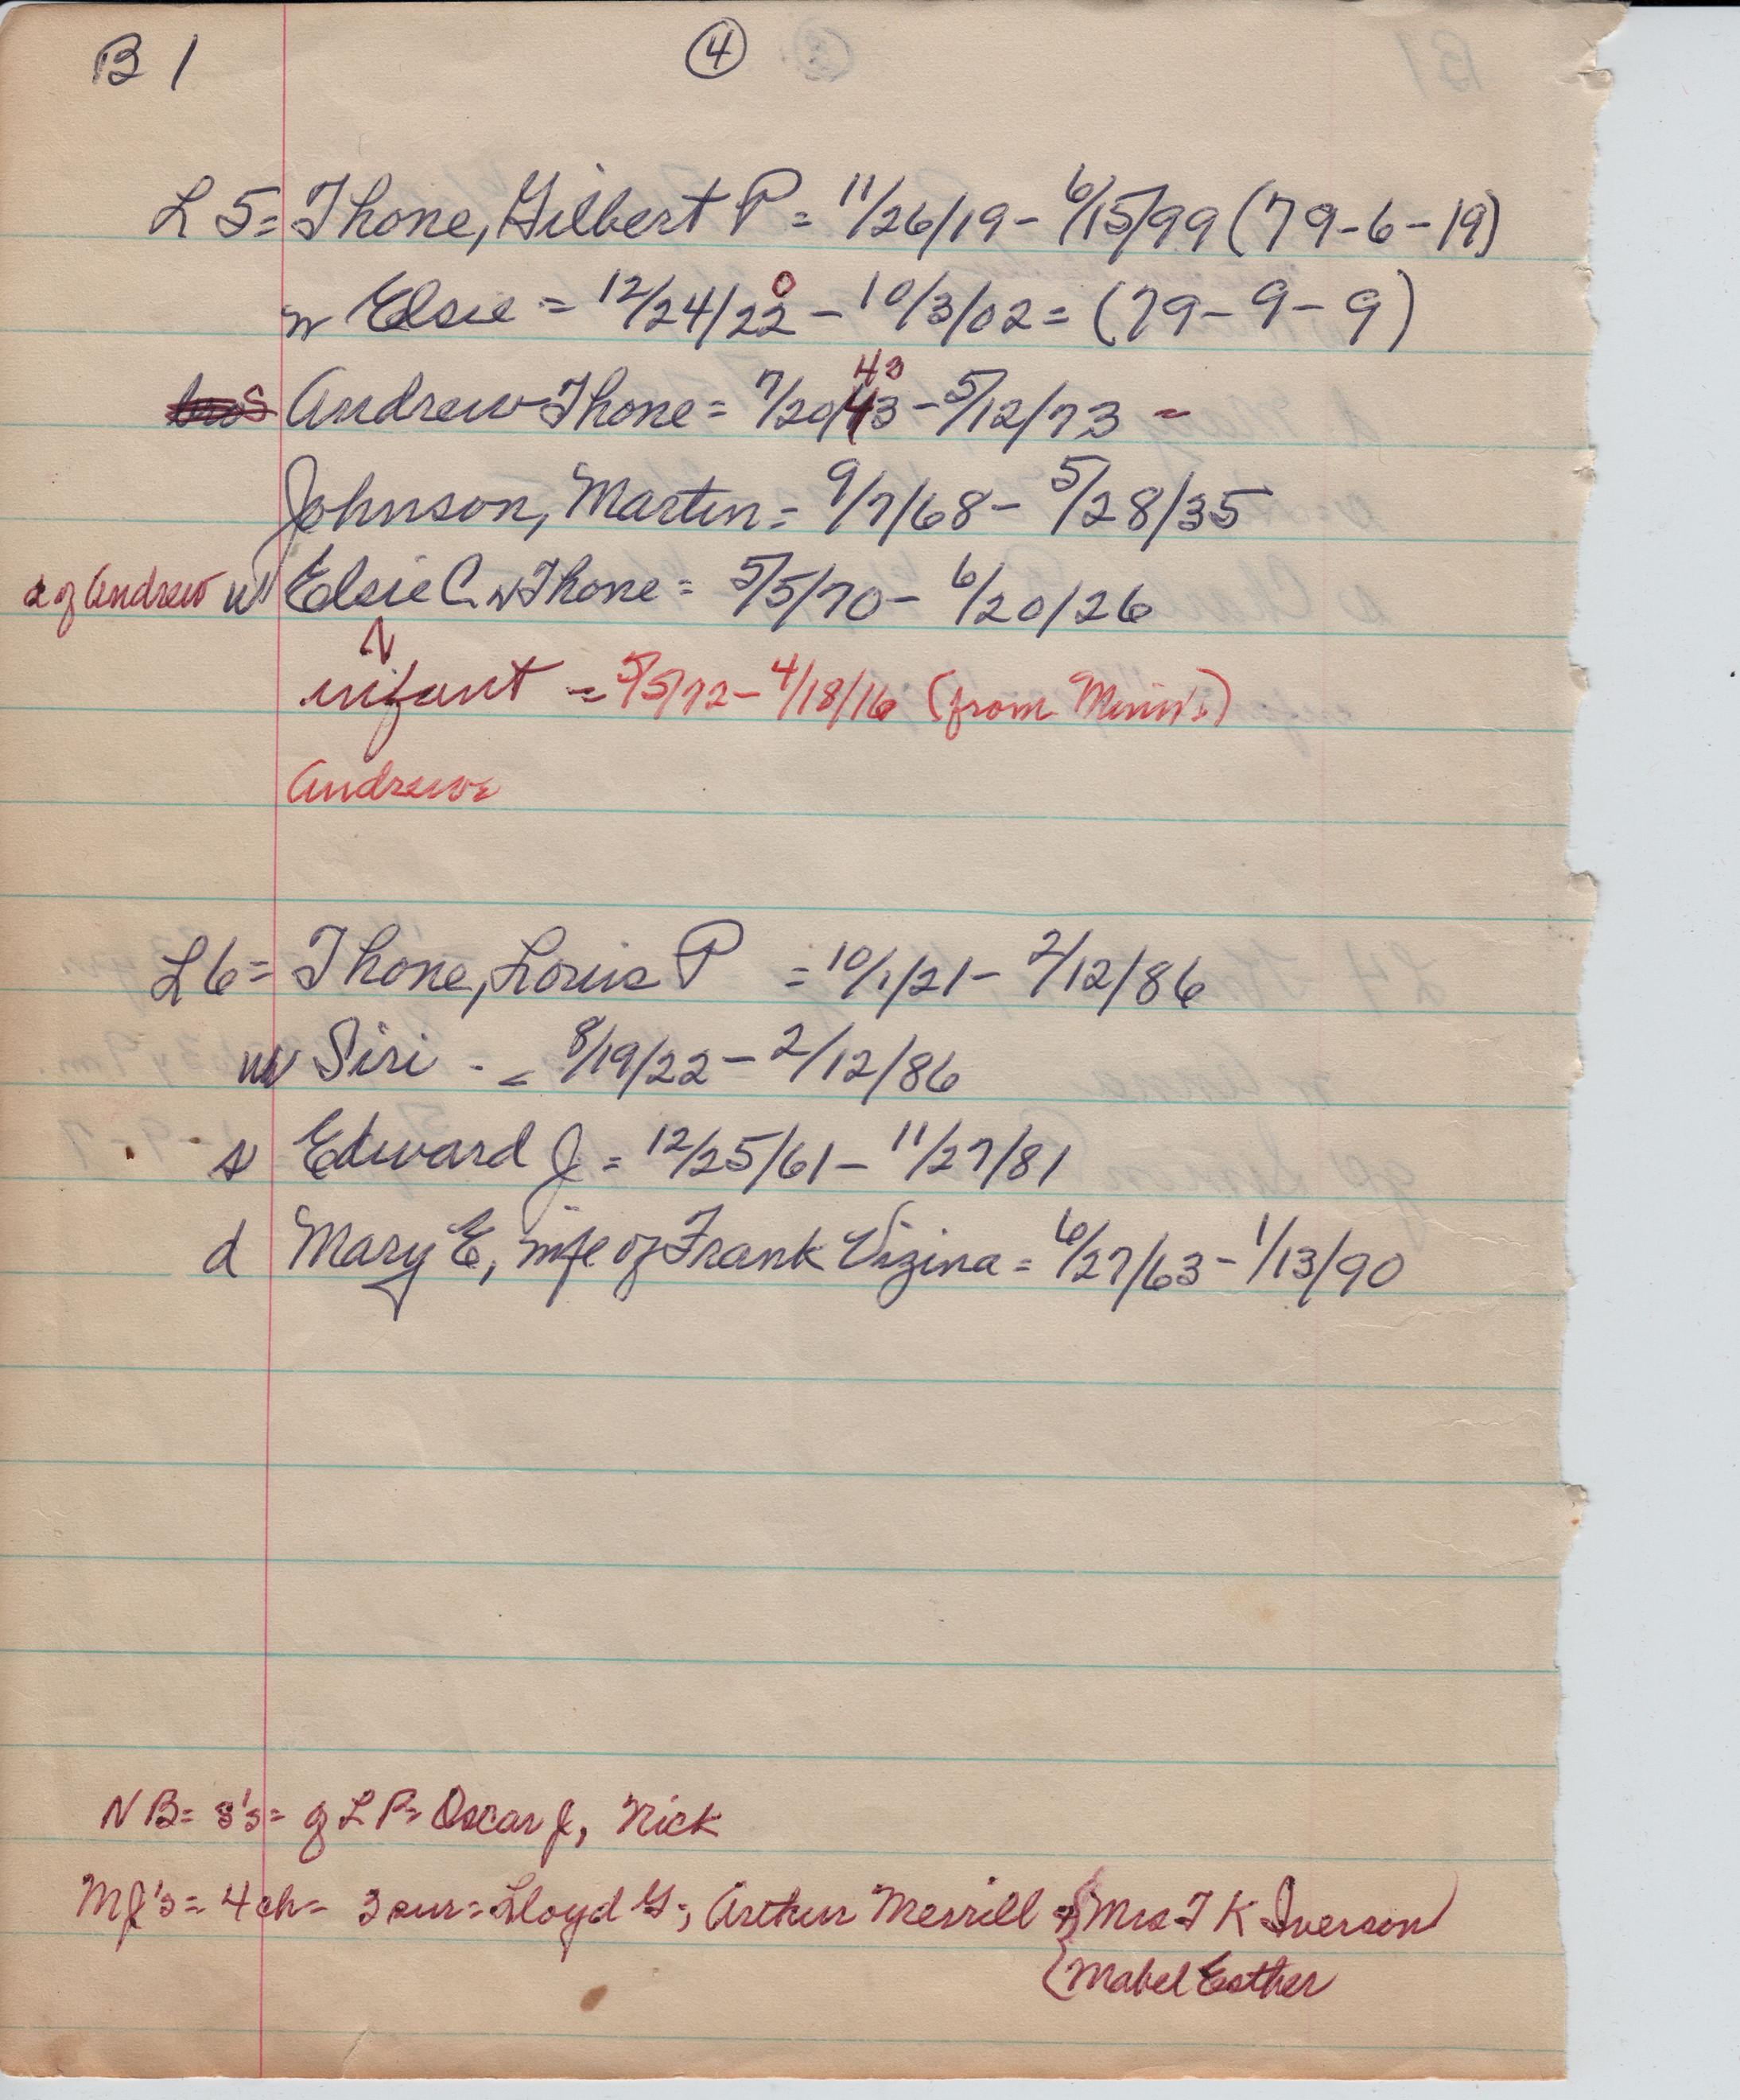 B 1 ④
L 5 = Thone, Gilbert P = 11/26/19 - 6/15/99 (79-6-19)
w Elsie = 12/24/22 0 - 10/3/02 = (79-9-9)
bros Andrew Thone = 7/20/43 43 - 5/12/73 -
Johnson, Martin = 9/7/68 - 5/28/35
d of Andrew w Elsie C. N Thone = 5/5/70 - 6/20/26
N
infant = 5/5/72 - 4/18/16 (from Minn.)
Andrew
L 6 = Thone, Louis P = 10/1/21 - 2/12/86
w Siri - = 8/19/22 - 2/12/86
s Edward J = 12/25/61 - 11/27/81
d Mary E, wife of Frank Vizina = 6/27/63 - 1/13/90
NB = s's = of L P = Oscar J, Nick
MJ's = 4 ch = 3 sur = Lloyd G, Arthur Merrill + { Mrs T K Iverson
{ Mabel Esther